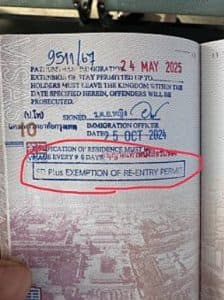 9511/67
IMMIGRATION 24 MAY 2025
EXTENSION OF STAY PERMITTED UP TO
HOLDERS MUST LEAVE THE KINGDOM WITHIN THE
DATE SPECIFIED HEREIN. OFFENDERS WILL BE
PROSECUTED.
SIGNED
IMMIGRATION OFFICER
DATE 25 OCT 2024
NOTIFICATION OF RESIDENCE MUST BE
MADE EVERY 90 DAYS
Plus EXEMPTION OF RE-ENTRY PERMIT